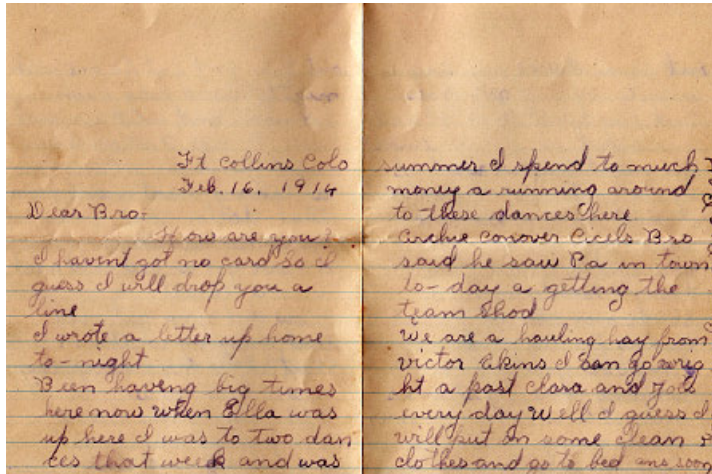 Ft Collins Colo
Feb. 16, 1914
Dear Bro-
How are you?
I havent got no card So I
guess I will drop you a
line
I wrote a letter up home
to-night
Been having big times
here now when Ella was
up here I was to two dan
ces that week and was
summer I spend to much
money a running around
to these dances here
Archie Conover Cicels Bro
said he saw Pa in town
to-day a getting the
team Shod
We are a hauling hay from
victor Akins I go
ht a past Clara and Joes
every day Well I guess I
will put on some clean
clothes and go to bed ans soon